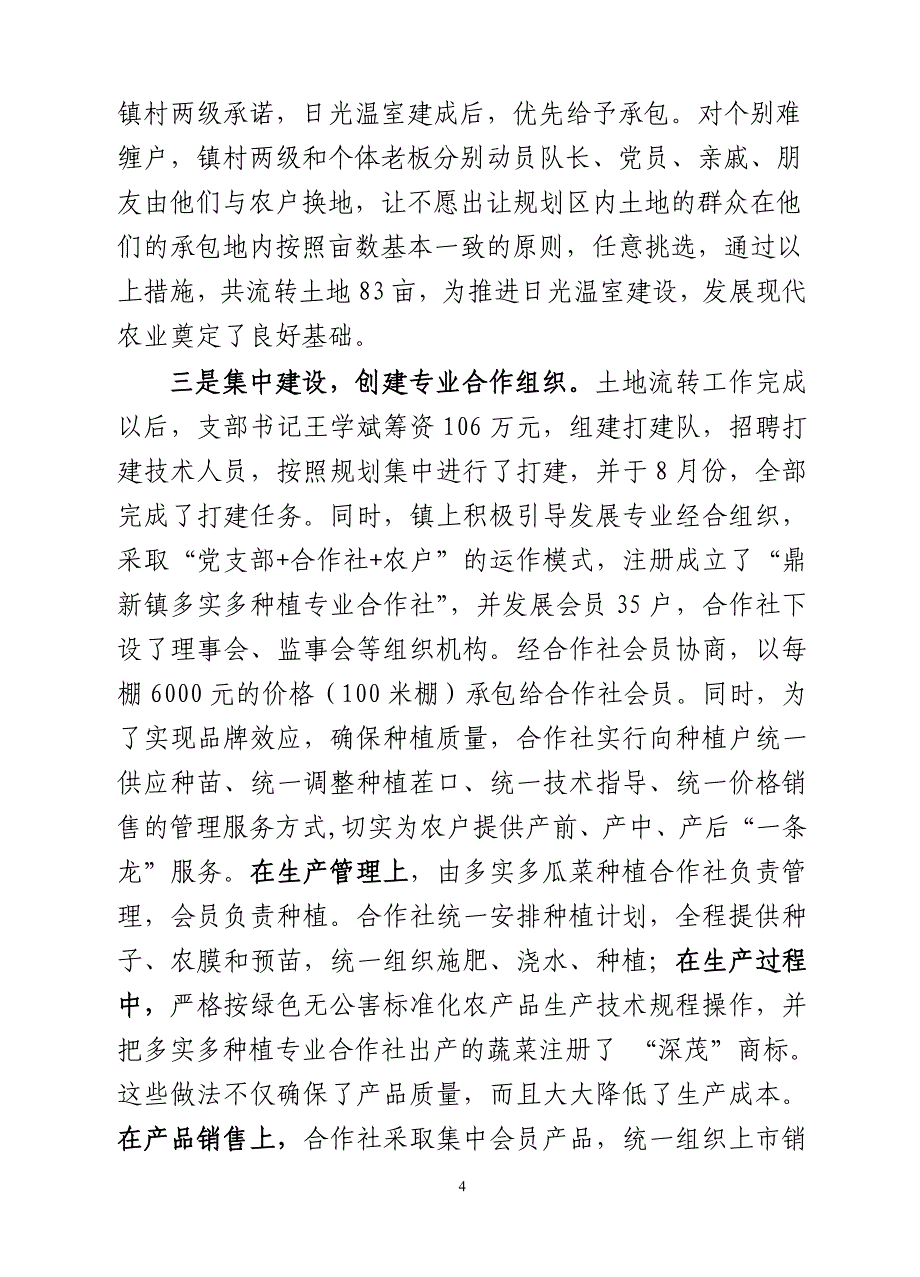 镇村两级承诺，日光温室建成后，优先给予承包。对个别难
缠户，镇村两级和个体老板分别动员队长、党员、亲戚、朋
友由他们与农户换地，让不愿出让规划区内土地的群众在他
们的承包地内按照亩数基本一致的原则，任意挑选，通过以
上措施，共流转土地 83 亩，为推进日光温室建设，发展现代
农业奠定了良好基础。
三是集中建设，创建专业合作组织。土地流转工作完成
以后，支部书记王学斌筹资 106 万元，组建打建队，招聘打
建技术人员，按照规划集中进行了打建，并于 8 月份，全部
完成了打建任务。同时，镇上积极引导发展专业经合组织，
采取“党支部+合作社+农户”的运作模式，注册成立了“鼎
新镇多实多种植专业合作社”，并发展会员 35 户，合作社下
设了理事会、监事会等组织机构。经合作社会员协商，以每
棚 6000 元的价格（100 米棚）承包给合作社会员。同时，为
了实现品牌效应，确保种植质量，合作社实行向种植户统一
供应种苗、统一调整种植茬口、统一技术指导、统一价格销
售的管理服务方式,切实为农户提供产前、产中、产后“一条
龙”服务。在生产管理上，由多实多瓜菜种植合作社负责管
理，会员负责种植。合作社统一安排种植计划，全程提供种
子、农膜和预苗，统一组织施肥、浇水、种植；在生产过程
中，严格按绿色无公害标准化农产品生产技术规程操作，并
把多实多种植专业合作社出产的蔬菜注册了 “深茂”商标。
这些做法不仅确保了产品质量，而且大大降低了生产成本。
在产品销售上，合作社采取集中会员产品，统一组织上市销
4